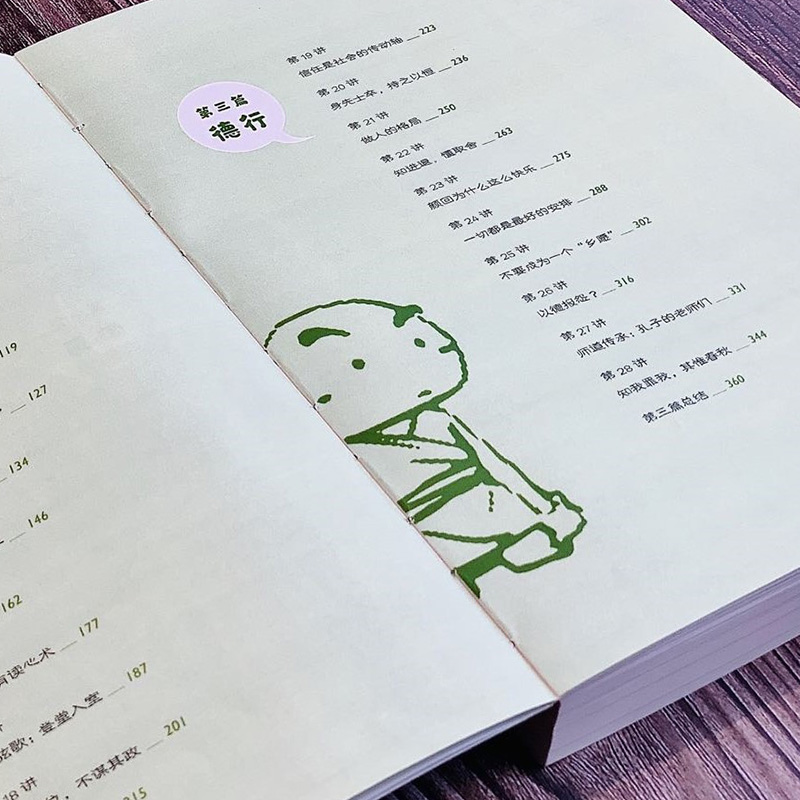 119
127
134
146
162
读心术 — 177
弦歌：登堂入室 — 187
18 讲
不谋其政 — 201
215
第三篇
德行
第 19 讲
信任是社会的传动轴 — 223
第 20 讲
身先士卒，持之以恒 — 236
第 21 讲
做人的格局 — 250
第 22 讲
知进退，懂取舍 — 263
第 23 讲
颜回为什么这么快乐 — 275
第 24 讲
一切都是最好的安排 — 288
第 25 讲
不要成为一个“乡愿” — 302
第 26 讲
以德报怨？ — 316
第 27 讲
师道传承：孔子的老师们 — 331
第 28 讲
知我罪我，其惟春秋 — 344
第三篇总结 — 360